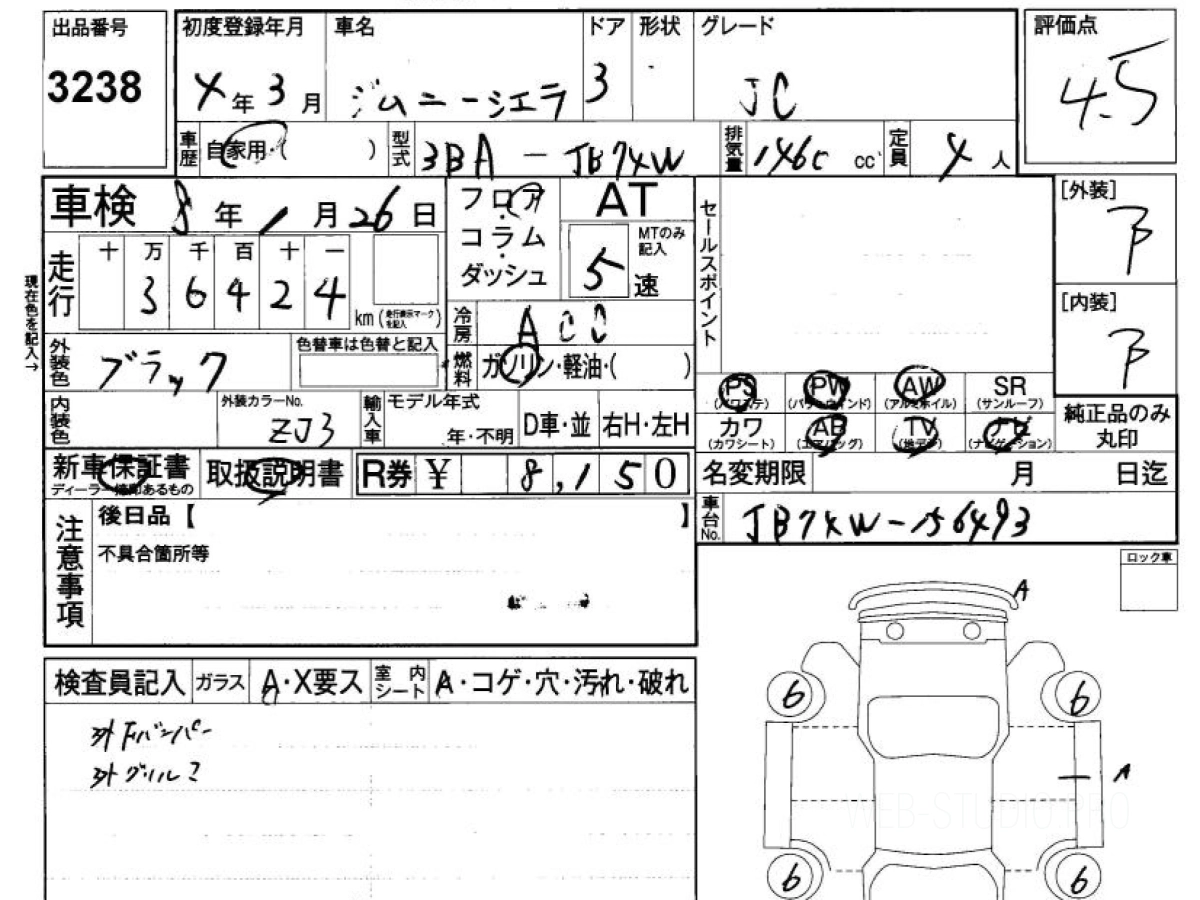 出品番号 初度登録年月 車名 ドア 形状 グレード 評価点
3238 4年3月 ジムニーシエラ 3 JC 4.5
車歴 自家用・( ) 型式 3BA-JB74W 排気量 1460 cc 定員 4人
車検 8年1月26日 フロア AT セールスポイント [外装]
コラム MTのみ記入 B
走行 十 万 千 百 十 一 ダッシュ 5速
3 6 4 2 4 km (走行表示マークを記入) [内装]
現在色を記入→ 冷房 ACC B
外装色 ブラック 色替車は色替と記入 燃料 ガソリン・軽油・( )
PS PW AW SR
(パワステ) (パワーウインド) (アルミホイル) (サンルーフ)
内装色 外装カラーNo. ZJ3 輸入車 モデル年式 年・不明 D車・並 右H・左H
カワ AB TV ナビ 純正品のみ丸印
(カワシート) (エアバッグ) (地デジ) (ナビゲーション)
新車保証書 取扱説明書 R券 ¥ 8,150 名変期限 月 日迄
ディーラー捺印あるもの
車台No. JB74W-156493
注意事項 後日品【 】
不具合箇所等 ロック車
A
検査員記入 ガラス A・X要ス 室内シート A・コゲ・穴・汚れ・破れ
外Fバンパー
外グリル
6 6
A
WEB-STUDIO.PRO
6 6